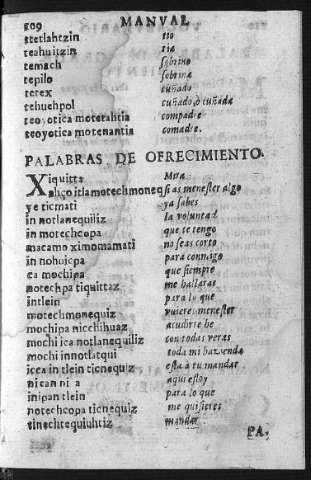 209 MANVAL
tetlahtzin tio
teahuitzin tia
temach sobrino
tepilo sobrina
terex cuñado
tehuehpol cuñado, ò cuñada
teoyotica motetahtia compadre
teoyotica motenantia comadre.
PALABRAS DE OFRECIMIENTO.
Xiquitta Mira
ahço itla motechmoneq si as menester algo
ye ticmati ya sabes
in notlanequiliz la voluntad
in motechcopa que te tengo
macamo ximomamati no seas corto
in nohuicpa para conmigo
ca mochipa que siempre
notechpa tiquittaz me hallaras
intlein para lo que
motechmonequiz vuieres menester
mochipa nicchihuaz acudire he
mochi ica notlanequiliz con todas veras
mochi innotlatqui toda mi hazienda
icca in tlein ticnequiz esta a tu mandar
nican ni a aqui estoy
inipan tlein para lo que
notechcopa ticnequiz me quisieres
tinechtequiuhtiz mandar
PA,